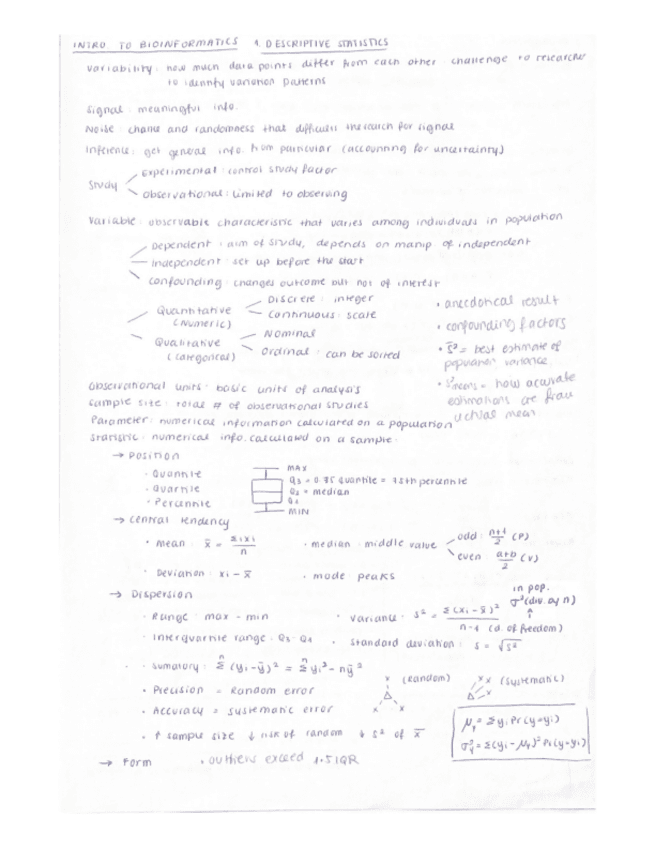 INTRO. TO BIOINFORMATICS 1. DESCRIPTIVE STATISTICS
variability: how much data points differ from each other. challenge to researcher
to identify variation patterns
signal: meaningful info.
Noise: chance and randomness that difficults the search for signal
Inference: get general info. from particular (accounting for uncertainty)
Study
Experimental: control study factor
Observational: limited to observing
Variable: observable characteristic that varies among individuals in population
Dependent: aim of study, depends on manip of independent
Independent: set up before the start
Confounding: changes outcome but not of interest
Quantitative (Numeric)
Discrete: integer
Continuous: scale
Qualitative (categorical)
Nominal
Ordinal: can be sorted
• anecdotical result
• confounding factors
• s² = best estimate of
population variance.
• s² means = how accurate
estimations are from
actual mean
Observational units: basic units of analysis
Sample size: total # of observational studies
Parameter: numerical information calculated on a population
Statistic: numerical info. calculated on a sample.
→ Position
· Quantile
· Quartile
· Percentile
MAX
Q3 = 0.75 quantile = 75th percentile
Q2 = median
Q1
MIN
→ Central tendency
· mean: x̄ = Σixi / n
· median: middle value
odd: n+1 / 2 (P)
even a+b / 2 (V)
· Deviation: xi − x̄
· mode peaks
→ Dispersion
in pop.
σ² (div. by n)
· Range: max − min
· Variance: s² = Σ(xi − x̄)² / n−1 (d. of freedom)
· Interquartile range: Q3 - Q1
· Standard deviation: s = √s²
· Sumatory: Σⁿ (yi − ȳ)² = Σⁿ yi² − nȳ²
· Precision = Random error
x (Random)
x x
x x (systematic)
x
· Accuracy = systematic error
· ↑ sample size ↓ risk of random ↓ s² of x̄
μy = Σ yi Pr(y=yi)
σ²y = Σ(yi − μy)² Pr(y=yi)
→ Form
· outliers exceed 1.5 IQR